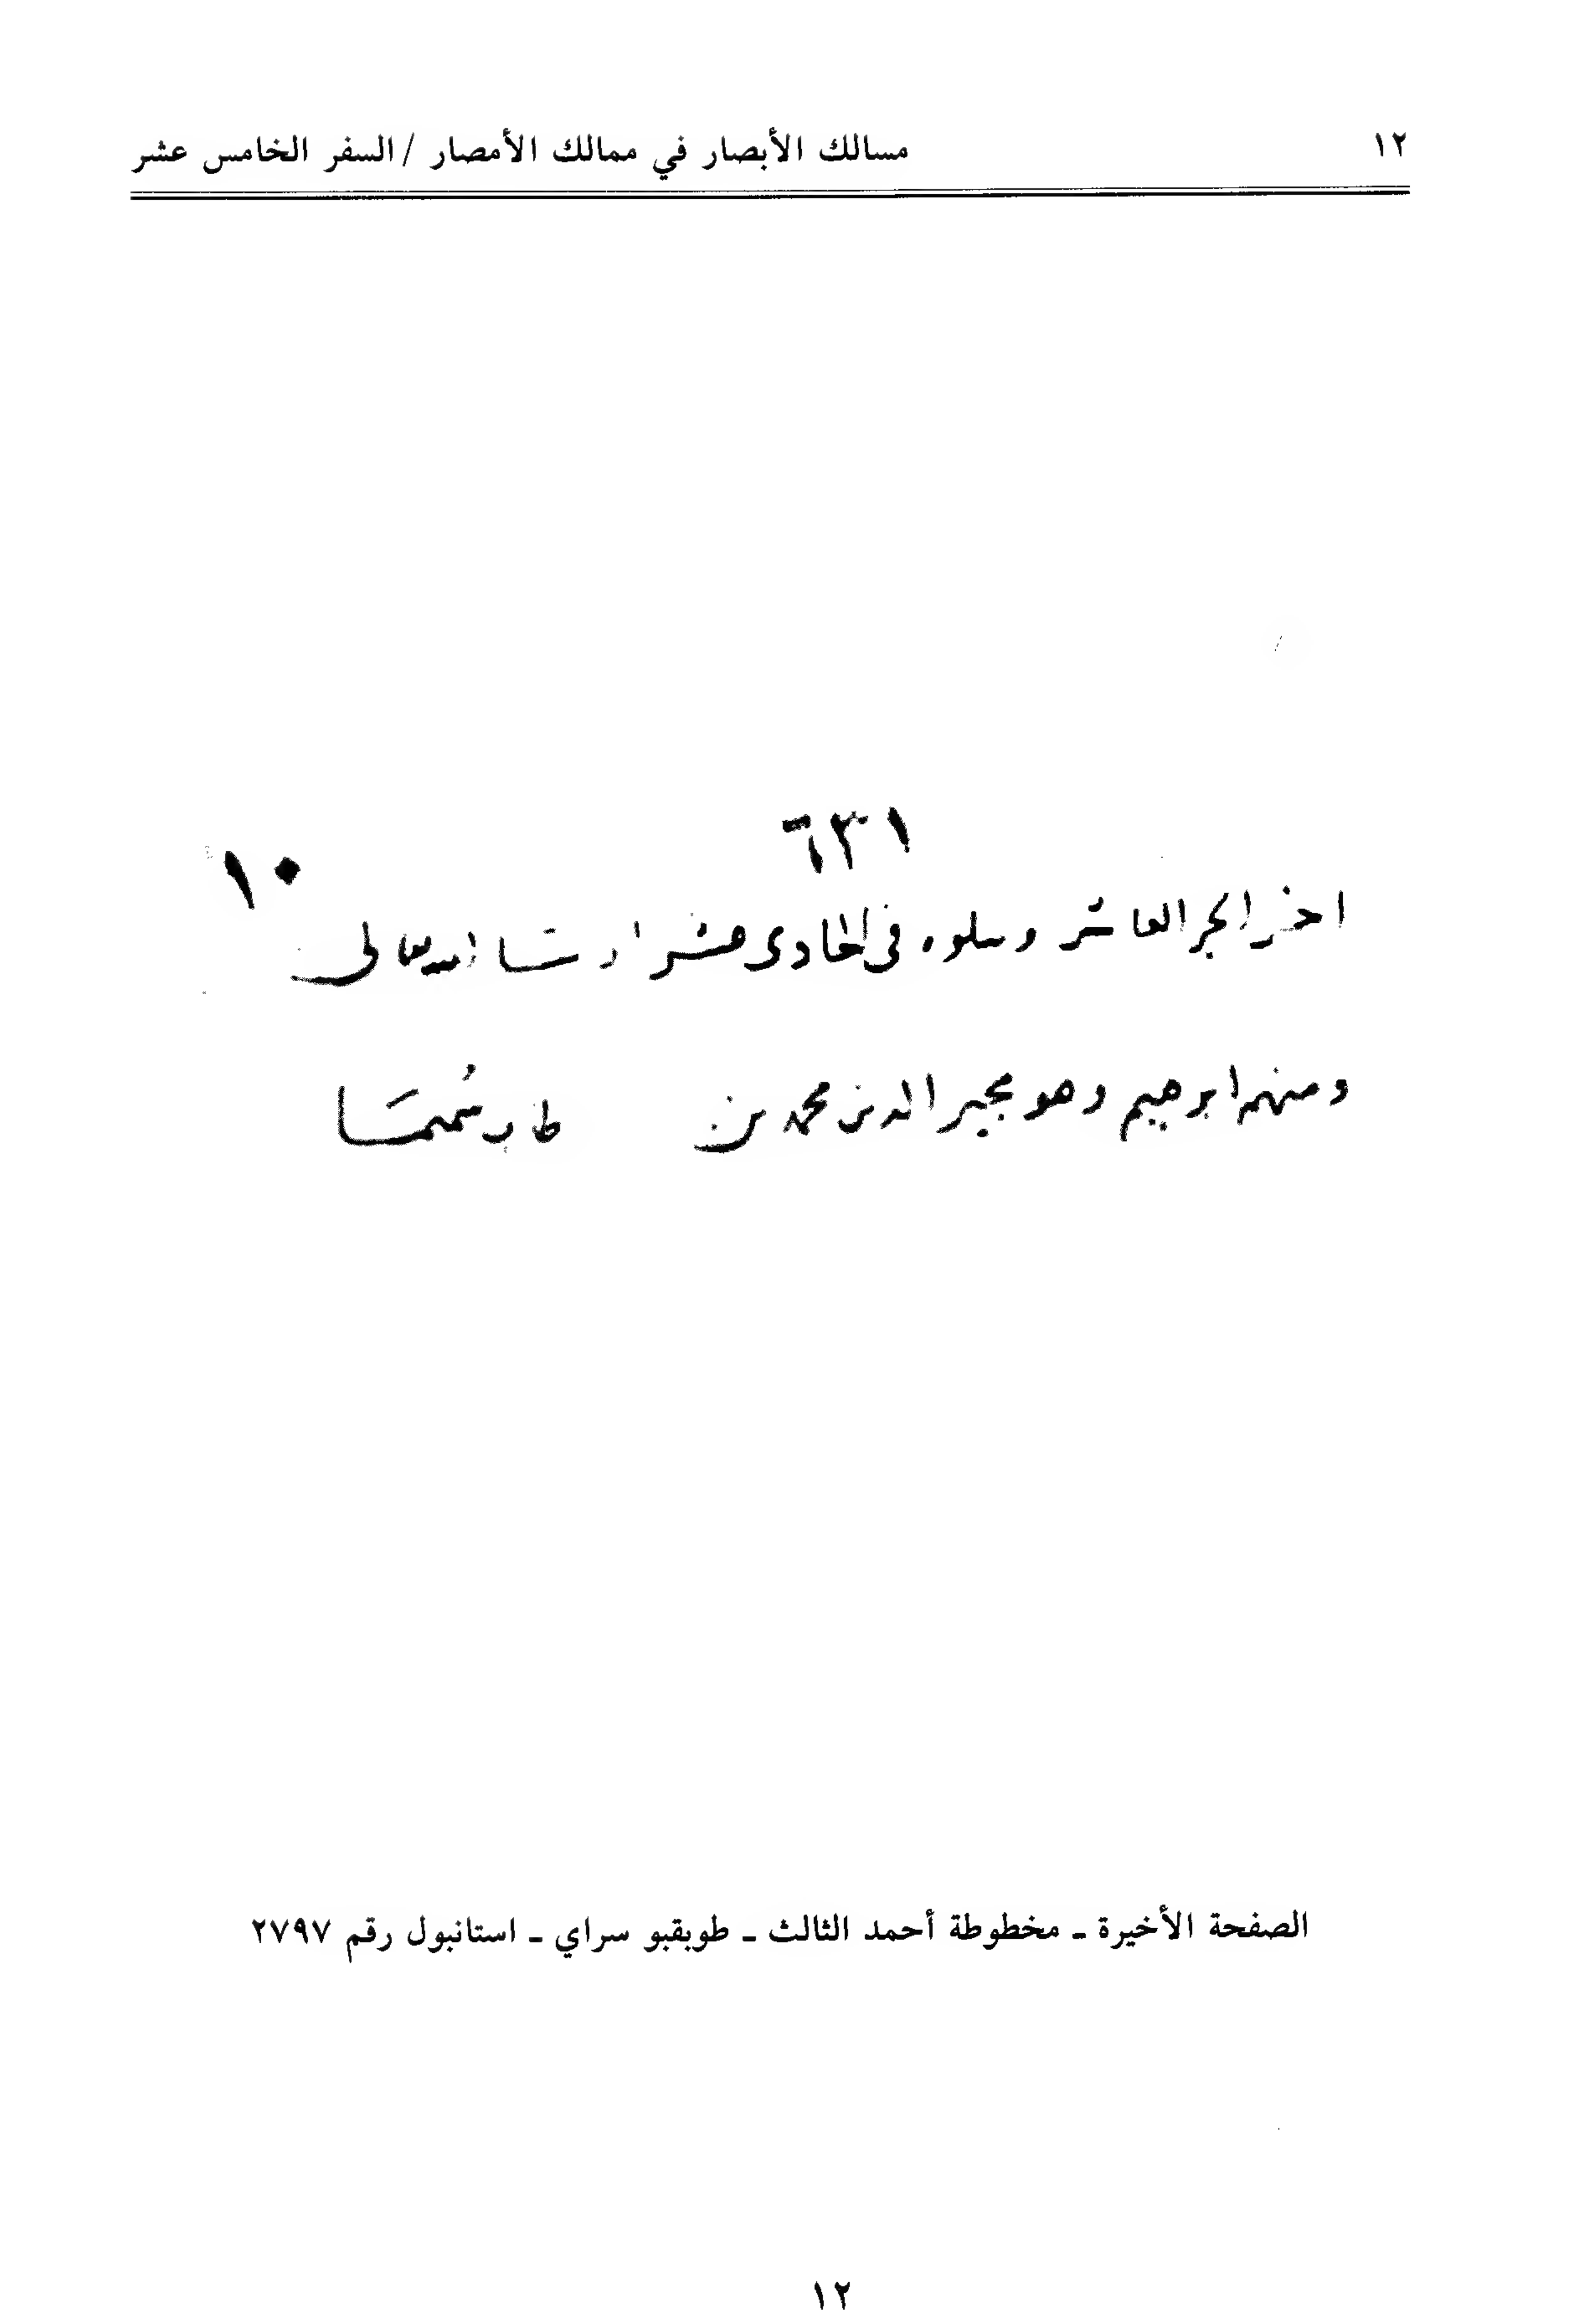 ١٢ مسالك الأبصار في ممالك الأمصار / السفر الخامس عشر
١٣٦
١٠
اخر الجز العاشر وسلوه فى الحادى عشر ان شا الله تعالى
ومنهم ابرهيم وهو مجير الدين محمد بن
الصفحة الأخيرة ـ مخطوطة أحمد الثالث ـ طوبقبو سراي ـ استانبول رقم ٢٧٩٧
١٢